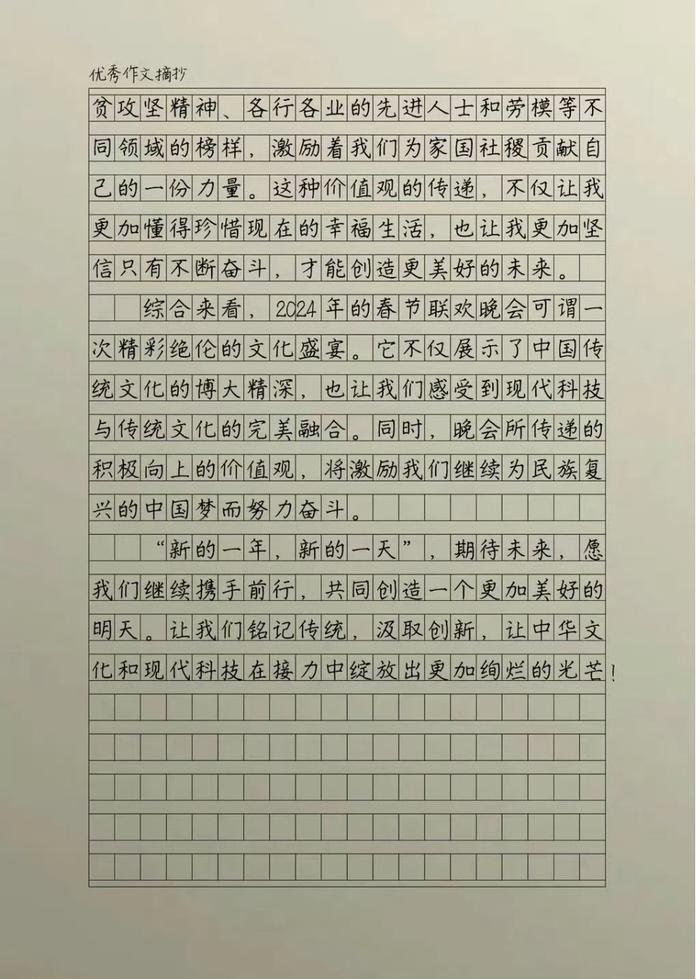 优秀作文摘抄
贫攻坚精神、各行各业的先进人士和劳模等不
同领域的榜样，激励着我们为家国社稷贡献自
己的一份力量。这种价值观的传递，不仅让我
更加懂得珍惜现在的幸福生活，也让我更加坚
信只有不断奋斗，才能创造更美好的未来。
综合来看，2024年的春节联欢晚会可谓一
次精彩绝伦的文化盛宴。它不仅展示了中国传
统文化的博大精深，也让我们感受到现代科技
与传统文化的完美融合。同时，晚会所传递的
积极向上的价值观，将激励我们继续为民族复
兴的中国梦而努力奋斗。
“新的一年，新的一天”，期待未来，愿
我们继续携手前行，共同创造一个更加美好的
明天。让我们铭记传统，汲取创新，让中华文
化和现代科技在接力中绽放出更加绚烂的光芒！